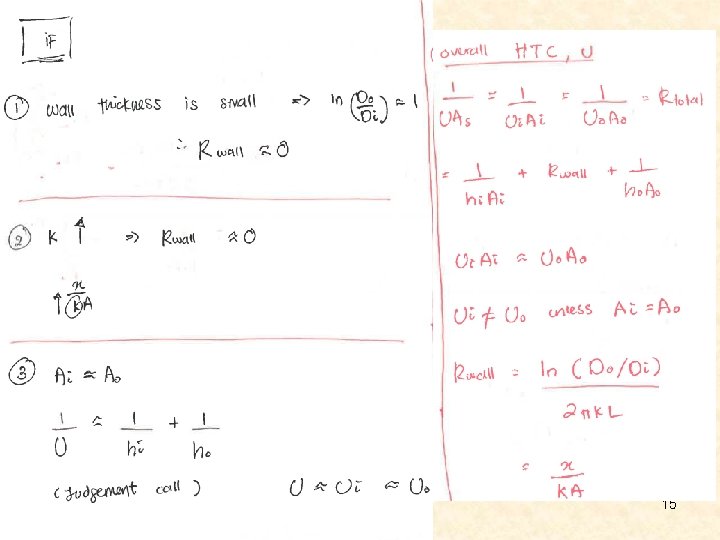 IF
① wall thickness is small => ln (Do/Di) ≈ 1
∴ Rwall ≈ 0
② K ↑ => Rwall ≈ 0
↑ x/kA
③ Ai ≈ Ao
1/U ≈ 1/hi + 1/ho
(Judgement call) U ≈ Ui ≈ Uo
(overall HTC, U
1/UAs = 1/UiAi = 1/UoAo = Rtotal
= 1/hiAi + Rwall + 1/hoAo
UiAi ≈ UoAo
Ui ≠ Uo unless Ai = Ao
Rwall = ln (Do/Di) / 2πkL
= x/kA
15